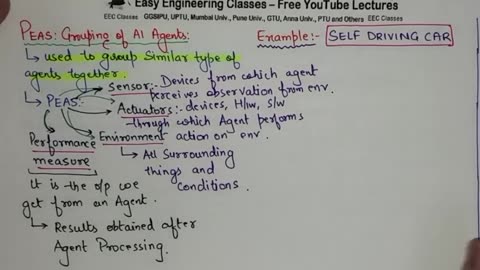 Easy Engineering Classes – Free YouTube Lectures
EEC Classes GGSIPU, UPTU, Mumbai Univ., Pune Univ., GTU, Anna Univ., PTU and Others EEC Classes
PEAS: Grouping of AI Agents:
Example:- SELF DRIVING CAR
↳ used to group Similar type of
agents together.
Sensor:- Devices from which agent
perceives observation from env.
↳ PEAS:
Actuators:- devices, H/w, S/w
through which Agent performs
action on env.
Performance
measure
Environment
↳ All Surrounding
things and
conditions.
It is the o/p we
get from an Agent.
↳ Results obtained after
Agent Processing.